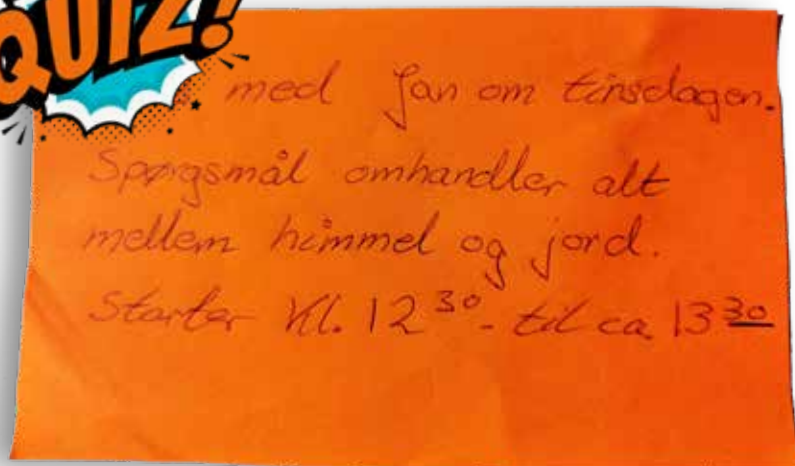 QUIZ!
med Jan om tirsdagen.
Spørgsmål omhandler alt
mellem himmel og jord.
Starter Kl. 12³⁰- til ca 13³⁰